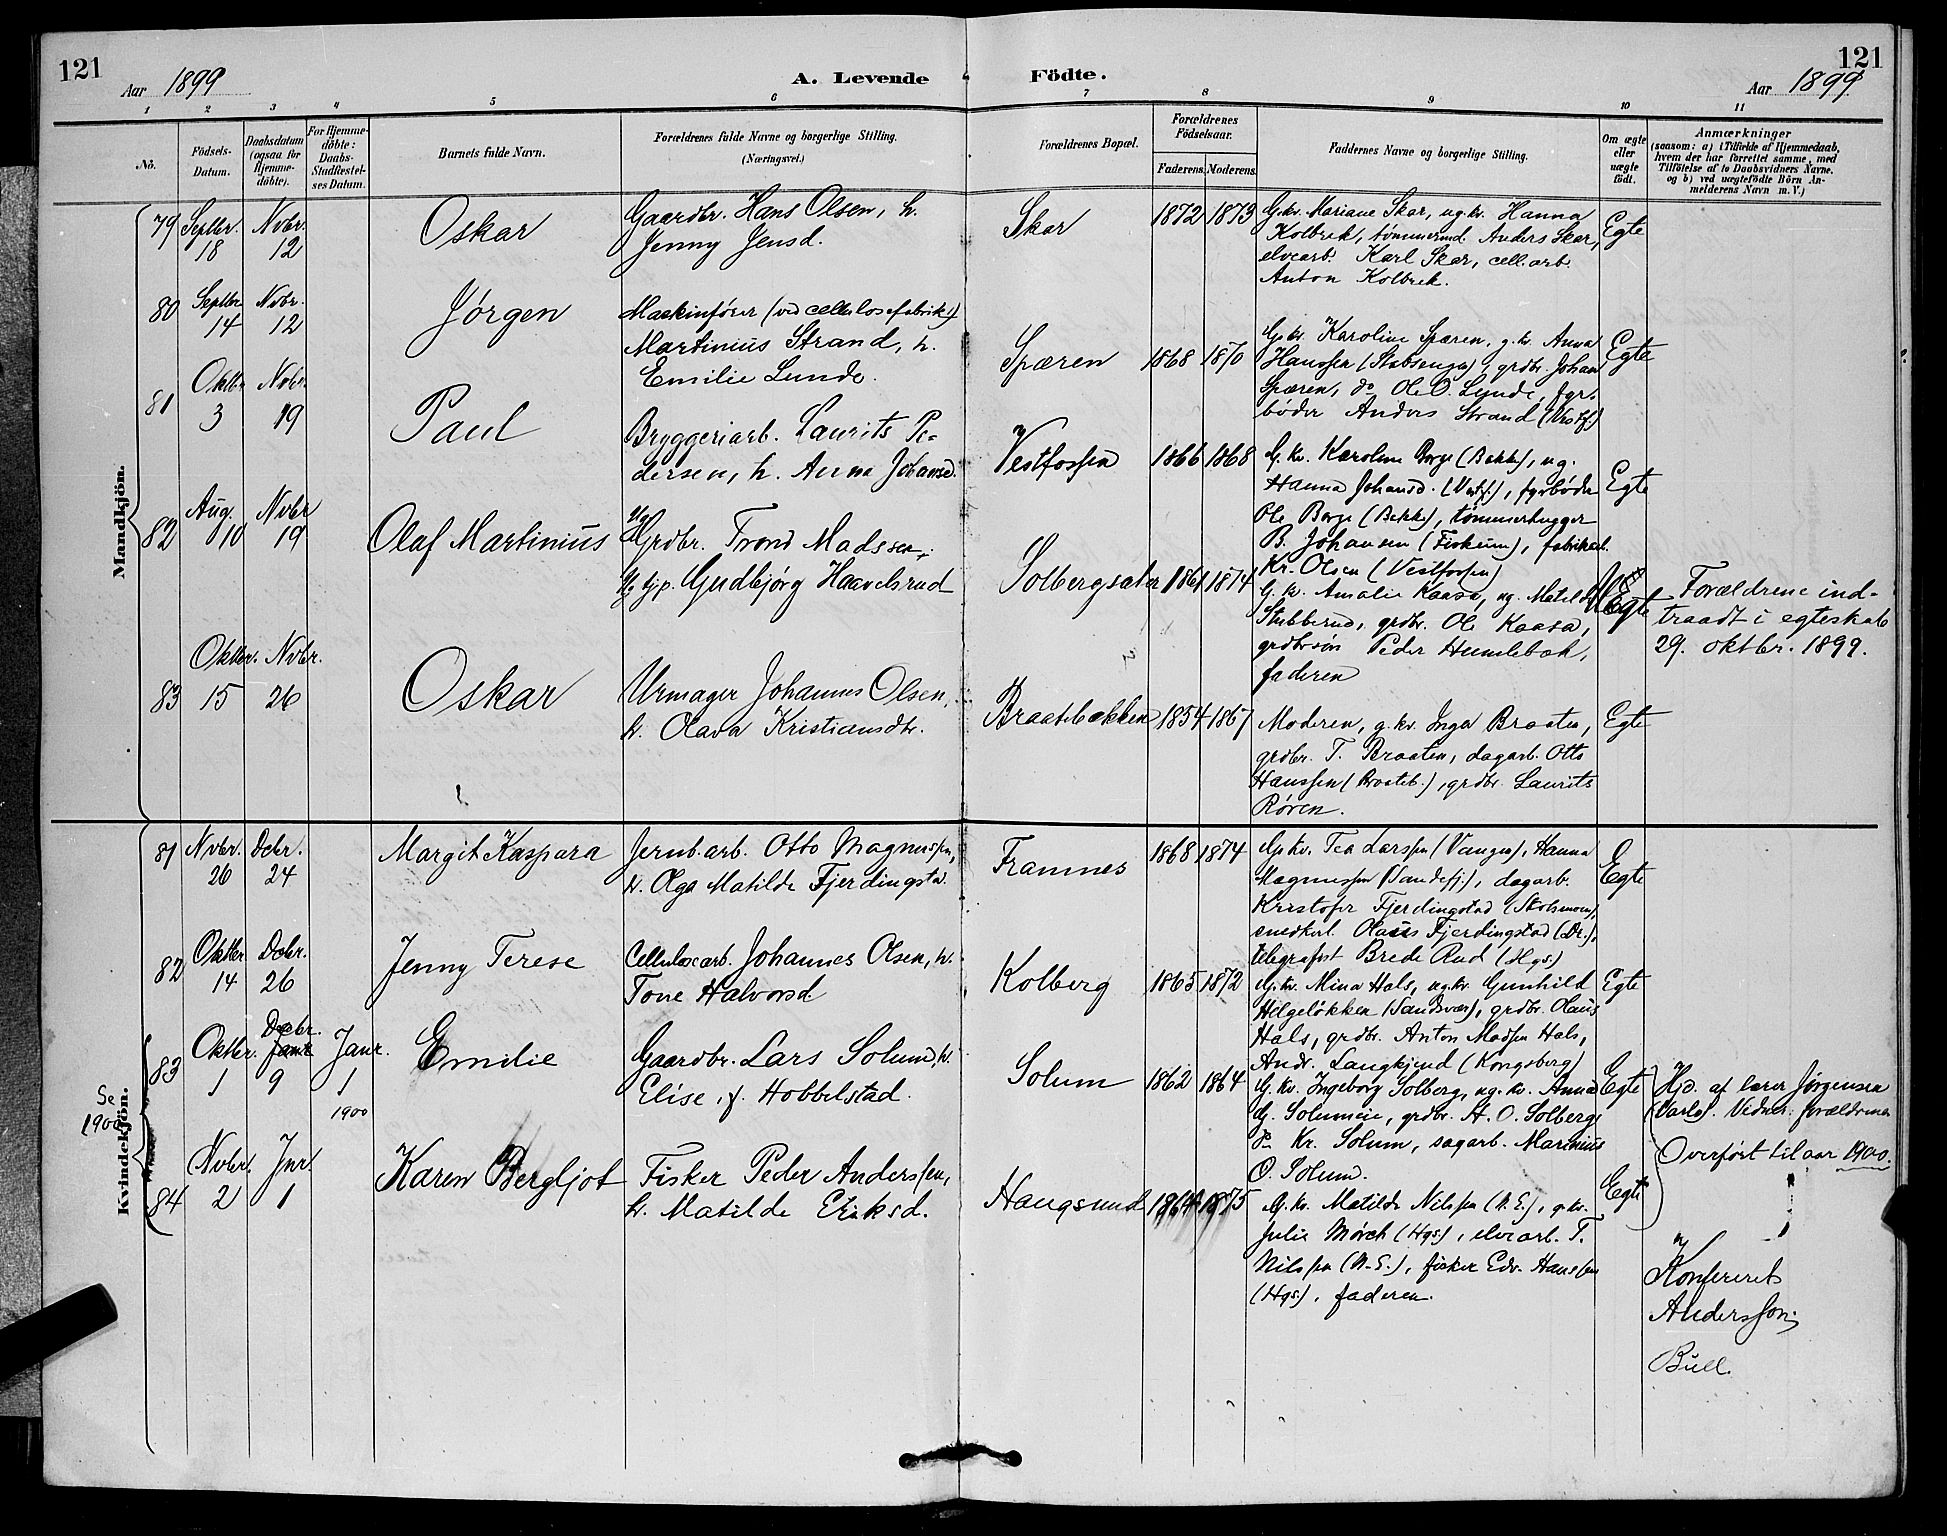 121
Aar 1899
A. Levende Födte.
121
Aar 1899
1 2 3 4 5 6 7 8 9 10 11
No.
Födsels-Datum.
Daabsdatum (ogsaa for Hjemme-döbte).
For Hjemme-döbte: Daabs-Stadfæstel-ses Datum.
Barnets fulde Navn.
Forældrenes fulde Navne og borgerlige Stilling.
(Næringsvei.)
Forældrenes Bopæl.
Forældrenes Födselsaar.
Faderens. Moderens.
Faddernes Navne og borgerlige Stilling.
Om ægte eller uægte födt.
Anmærkninger
(saasom: a) i Tilfælde af Hjemmedaab,
hvem der har forrettet samme, med
Tilföielse af to Daabsvidners Navne.
og b) ved uægtefödte Börn An-
melderens Navn m. V.)
Mandkjön.
79 Septbr. 18 Nvbr. 12
Oskar
Gaardbr. Hans Olsen, h.
Jenny Jensd.
Skar
1872 1873
G.kv. Mariane Skar, ug.kv. Hanna
Kolbrek, tømmermd. Anders Skar,
elvearb. Karl Skar, cell.arb.
Anton Kolbrek.
Egte
80 Septbr. 14 Nvbr. 12
Jørgen
Maskinfører (ved cellulosefabrik)
Martinius Strand, h.
Emilie Lunde.
Spæren
1868 1870
G.kv. Karoline Spæren, g.kv. Anna
Hanssen (Stubsengen), grdbr. Johan
Spæren, do Ole O. Lunde, fyr-
bøder Anders Strand (Vestf.)
Egte
81 Oktbr. 3 Nvbr. 19
Paul
Bryggeriarb. Laurits Pe-
dersen, h. Anna Johansd.
Vestfossen
1866 1868
G. kv. Karoline Borge (Bakke), ug.
Hanna Johansd. (Vestf.), fyrbøder
Ole Borge (Bakke), tømmerhugger
B. Johansen (Fiskum), fabrikarb.
Kr. Olsen (Vestfossen)
Egte
82 Aug. 10 Nvbr 19
Olaf Martinius
Ug Grdbr. Trond Madssen,
Ug tjp. Gudbjørg Haavelsrud
Solbergsæter
1861 1874
G. kv. Amalie Kaasa, ug. Matilde
Stubberud, grdbr. Ole Kaasa,
grdbrsøn Peder Humlebæk,
faderen
Egte
Forældrene ind-
traadt i egteskab
29. oktbr. 1899.
83 Oktbr. 15 Nvbr. 26
Oskar
Urmager Johannes Olsen,
h. Olava Kristiansdtr.
Braatebækken
1854 1867
Moderen, g.kv. Inger Braaten,
grdbr. T. Braaten, dagarb. Otto
Hanssen (Braateb.), grdbr. Laurits
Røren.
Egte
Kvindekjön.
81 Nvbr. 26 Dcbr. 24
Margit Kaspara
Jernb.arb. Otto Magnussen,
h. Olga Matilde Fjerdingstad.
Framnes
1868 1874
G.kv. Tea Larssen (Vangen), Hanna
Magnussen (Sandefj.), dagarb.
Kristofer Fjerdingstad (Skotsmoen),
snedkerl. Olaus Fjerdingstad (Dr.),
telegrafist Brede Rud (Hgs)
Egte
82 Oktbr. 14 Dcbr. 26
Jenny Terese
Cellulosearb. Johannes Olsen, h.
Tone Halvorsd.
Kolberg
1865 1872
G.kv. Mina Hals, ug.kv. Gunhild
Helgeløkken (Sandsvær), grdbr. Olaus
Hals, grdbr. Anton Madsen Hals,
Andr. Langkjend (Kongsberg)
Egte
83 Oktbr. 1 Decbr. 9 Janr. 1 1900
Emilie
Gaardbr. Lars Solum, h.
Elise, f. Hobbelstad.
Solum
1862 1864
G. kv. Ingeborg Solberg, ug. kv. Anna
G. Solumeie, grdbr. A. O. Solberg,
do Kr. Solum, sagarb. Marinius
O. Solum.
Egte
Hjd. af lærer Jørgensen
(Varlo). Vidner: forældrene
Overført til aar 1900.
Se 1900
84 Nvbr. 2 Jnr. 1
Karen Bergljot
Fisker Peder Anderssen,
h. Matilde Eriksd.
Haugsund
1864 1875
G. kv. Matilde Nilssen (N. E.), g.kv.
Julie Mørch (Hgs), elvearb. T.
Nilssen (N. E.), fisker Edv. Hanssen
(Hgs), faderen.
Egte
Konfereret
Anderssson,
Bull.